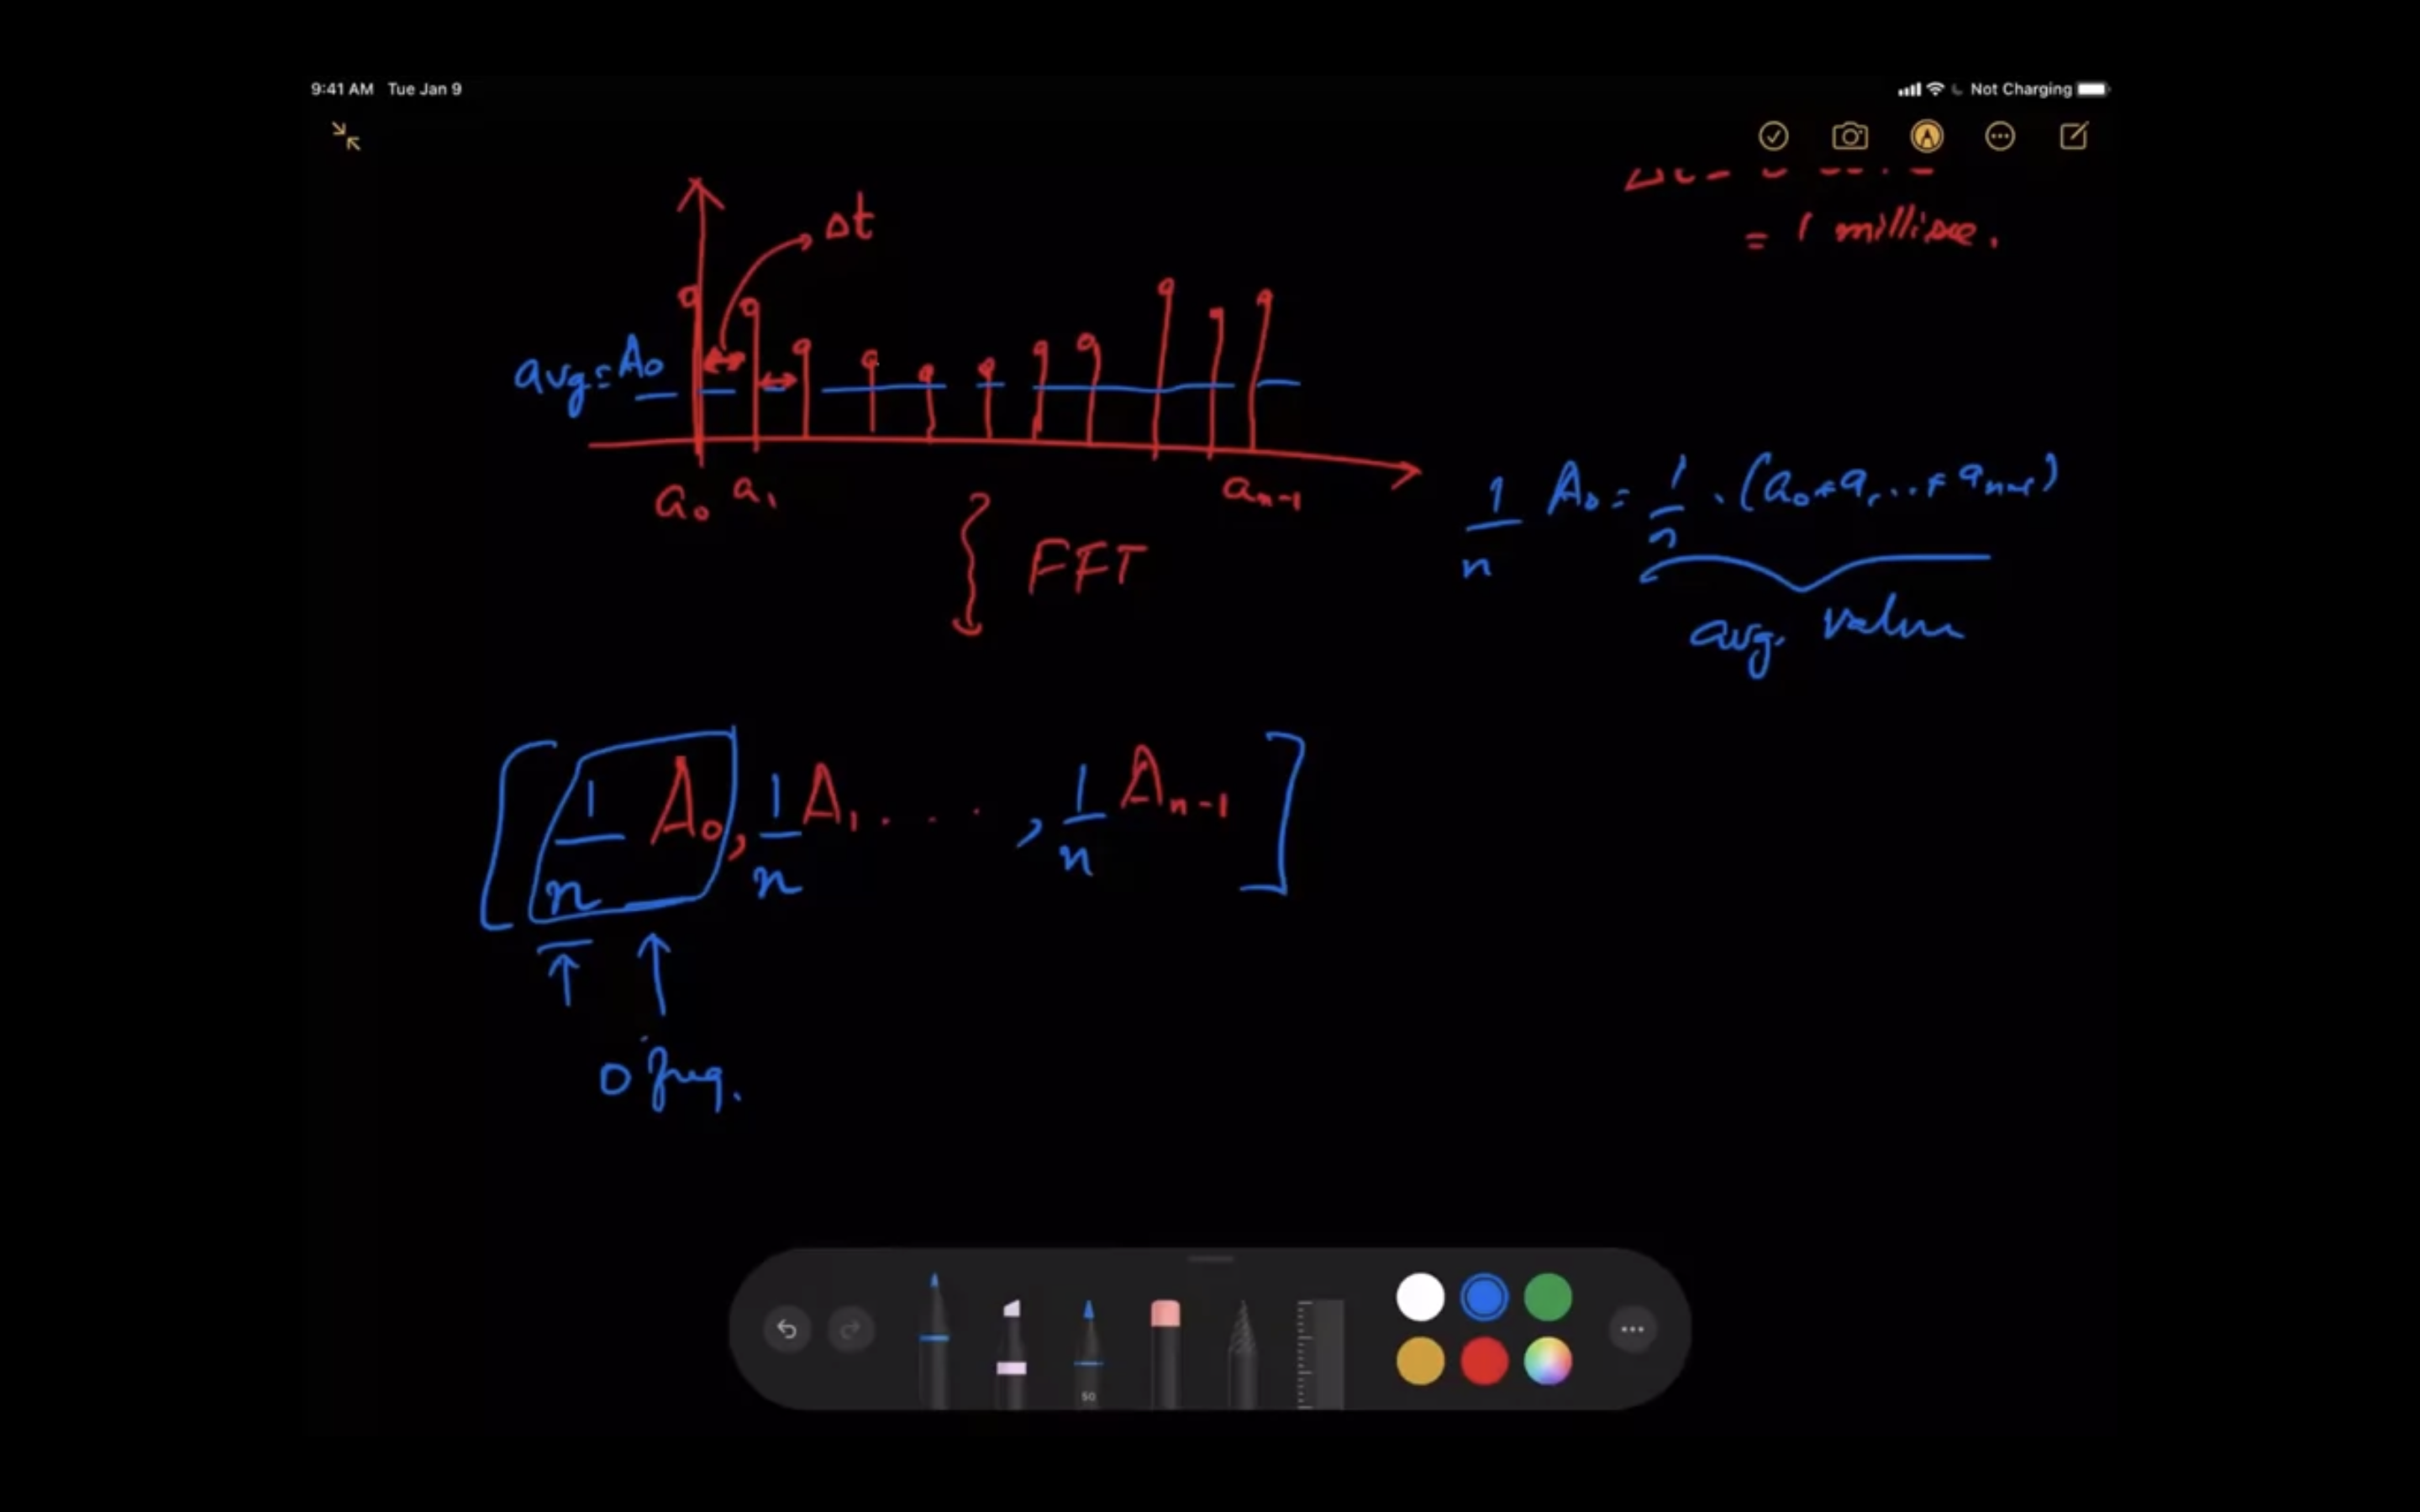 9:41 AM Tue Jan 9
Not Charging
Δt
= 1 millisec.
avg = A₀
a₀ a₁ aₙ₋₁
FFT
1/n A₀ = 1/n · (a₀ + a₁ ... + aₙ₋₁)
avg. value
[1/n A₀, 1/n A₁ . . . , 1/n Aₙ₋₁]
0 freq.
50